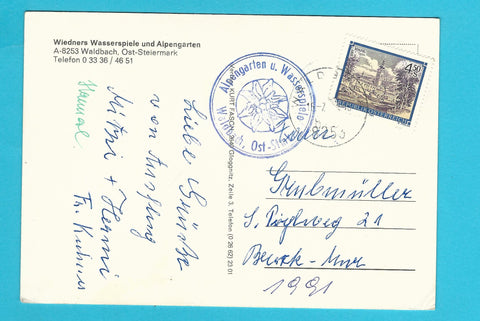 Wiedners Wasserspiele und Alpengarten
A-8253 Waldbach, Ost-Steiermark
Telefon 0 33 36 / 46 51
Liebe Grüße
von Ausflug
Mitzi + Hermi
Fr.
Alpengarten u. Wasserspiele
Waldbach, Ost-Steiermark
KURT FASCHING, Gloggnitz, Zeile 3, Telefon (0 26 62) 23 01
8253
4.50
REPUBLIK ÖSTERREICH
Grubmüller
21
Bruck-Mur
1991